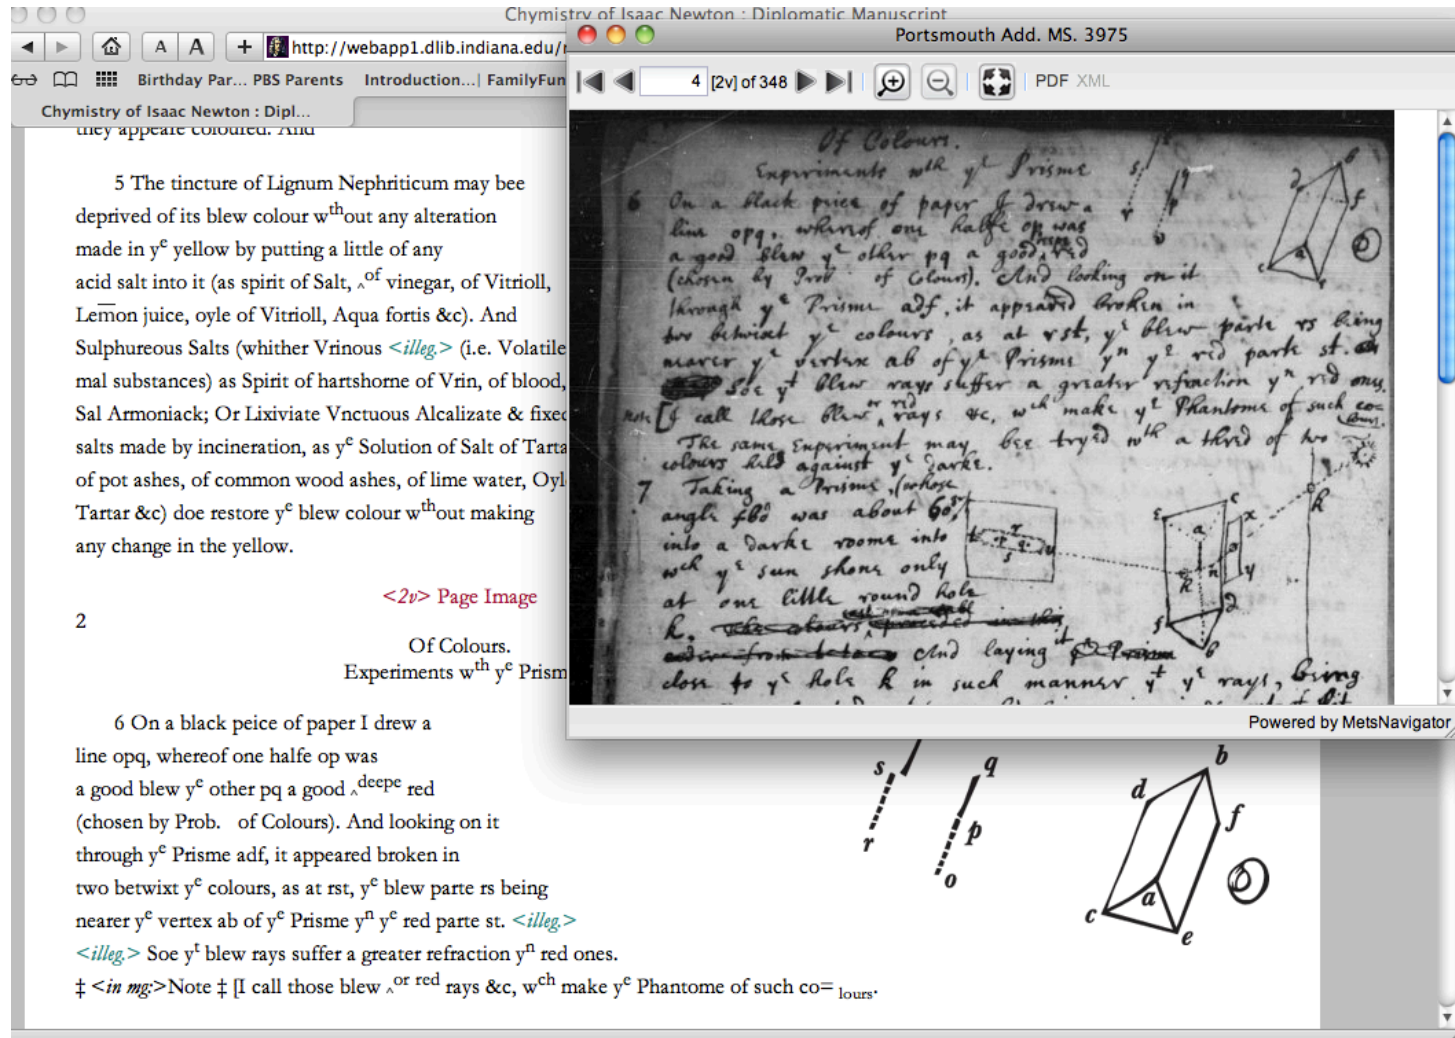 Chymistry of Isaac Newton : Diplomatic Manuscript
A A + http://webapp1.dlib.indiana.edu/
Birthday Par... PBS Parents Introduction...| FamilyFun
Chymistry of Isaac Newton : Dipl...
they appeare coloured. And
5 The tincture of Lignum Nephriticum may bee
deprived of its blew colour wth out any alteration
made in ye yellow by putting a little of any
acid salt into it (as spirit of Salt, ‸of vinegar, of Vitrioll,
Lem̅on juice, oyle of Vitrioll, Aqua fortis &c). And
Sulphureous Salts (whither Vrinous <illeg.> (i.e. Volatile
mal substances) as Spirit of hartshorne of Vrin, of blood,
Sal Armoniack; Or Lixiviate Vnctuous Alcalizate & fixed
salts made by incineration, as ye Solution of Salt of Tarta
of pot ashes, of common wood ashes, of lime water, Oyl
Tartar &c) doe restore ye blew colour wthout making
any change in the yellow.
<2v> Page Image
2
Of Colours.
Experiments wth ye Prism
6 On a black peice of paper I drew a
line opq, whereof one halfe op was
a good blew ye other pq a good ‸deepe red
(chosen by Prob. of Colours). And looking on it
through ye Prisme adf, it appeared broken in
two betwixt ye colours, as at rst, ye blew parte rs being
nearer ye vertex ab of ye Prisme yn ye red parte st. <illeg.>
<illeg.> Soe yt blew rays suffer a greater refraction yn red ones.
‡ <in mg:>Note ‡ [I call those blew ‸or red rays &c, wch make ye Phantome of such co= lours.
s q r p o
b d f a c e
Portsmouth Add. MS. 3975
4 [2v] of 348 PDF XML
Of Colours.
Experiments wth ye Prisme
6 On a black peice of paper I drew a
line opq, whereof one halfe op was
a good blew ye other pq a good deepe red
(chosen by Prob of Colours). And looking on it
through ye Prisme adf, it appeared broken in
two betwixt ye colours, as at rst, ye blew parte rs being
nearer ye vertex ab of ye Prisme yn ye red parte st.
Soe yt blew rays suffer a greater refraction yn red ones.
Note [I call those blew or red rays &c, wch make ye Phantome of such co=
lours.
The same Experiment may bee tryed wth a thred of two
colours held against ye darke.
7 Taking a Prisme, (whose
angle fbd was about 60
into a darke roome into
wch ye sun shone only
at one little round hole
k. And laying it
close to ye hole k in such manner yt ye rays, being
Powered by MetsNavigator